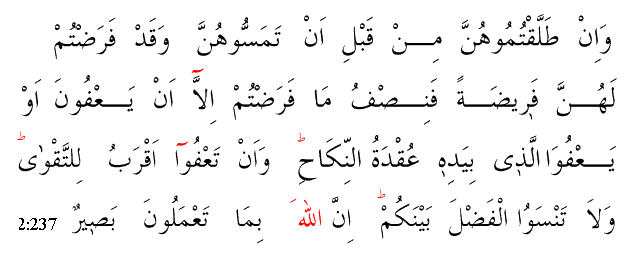 وَاِنْ طَلَّقْتُمُوهُنَّ مِـــنْ قَبْلِ اَنْ تَمَسُّوهُنَّ وَقَدْ فَرَضْتُمْ
لَهُـــنَّ فَرٖيضَـــةً فَنِـــصْفُ مَا فَرَضْتُمْ اِلَّٓا اَنْ يَـــعْفُونَ اَوْ
يَـــعْفُوَا الَّذٖى بِيَدِهٖ عُقْدَةُ النِّكَاحِؕ وَاَنْ تَعْفُوٓا اَقْرَبُ لِلتَّقْوٰىؕ
وَلَا تَنْسَوُا الْفَضْلَ بَيْنَكُمْؕ اِنَّ اللّٰهَ بِمَا تَعْمَلُونَ بَصٖيرٌ 2:237